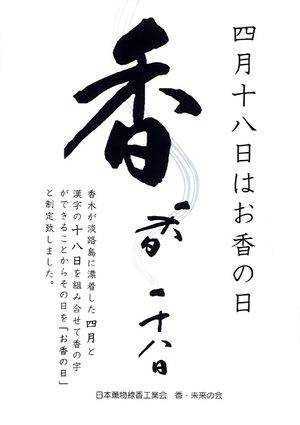 四月十八日はお香の日
香
香
一十八日
香木が淡路島に漂着した四月と
漢字の十八日を組み合せて香の字
ができることからその日を「お香の日」
と制定致しました。
日本薫物線香工業会　香・未来の会